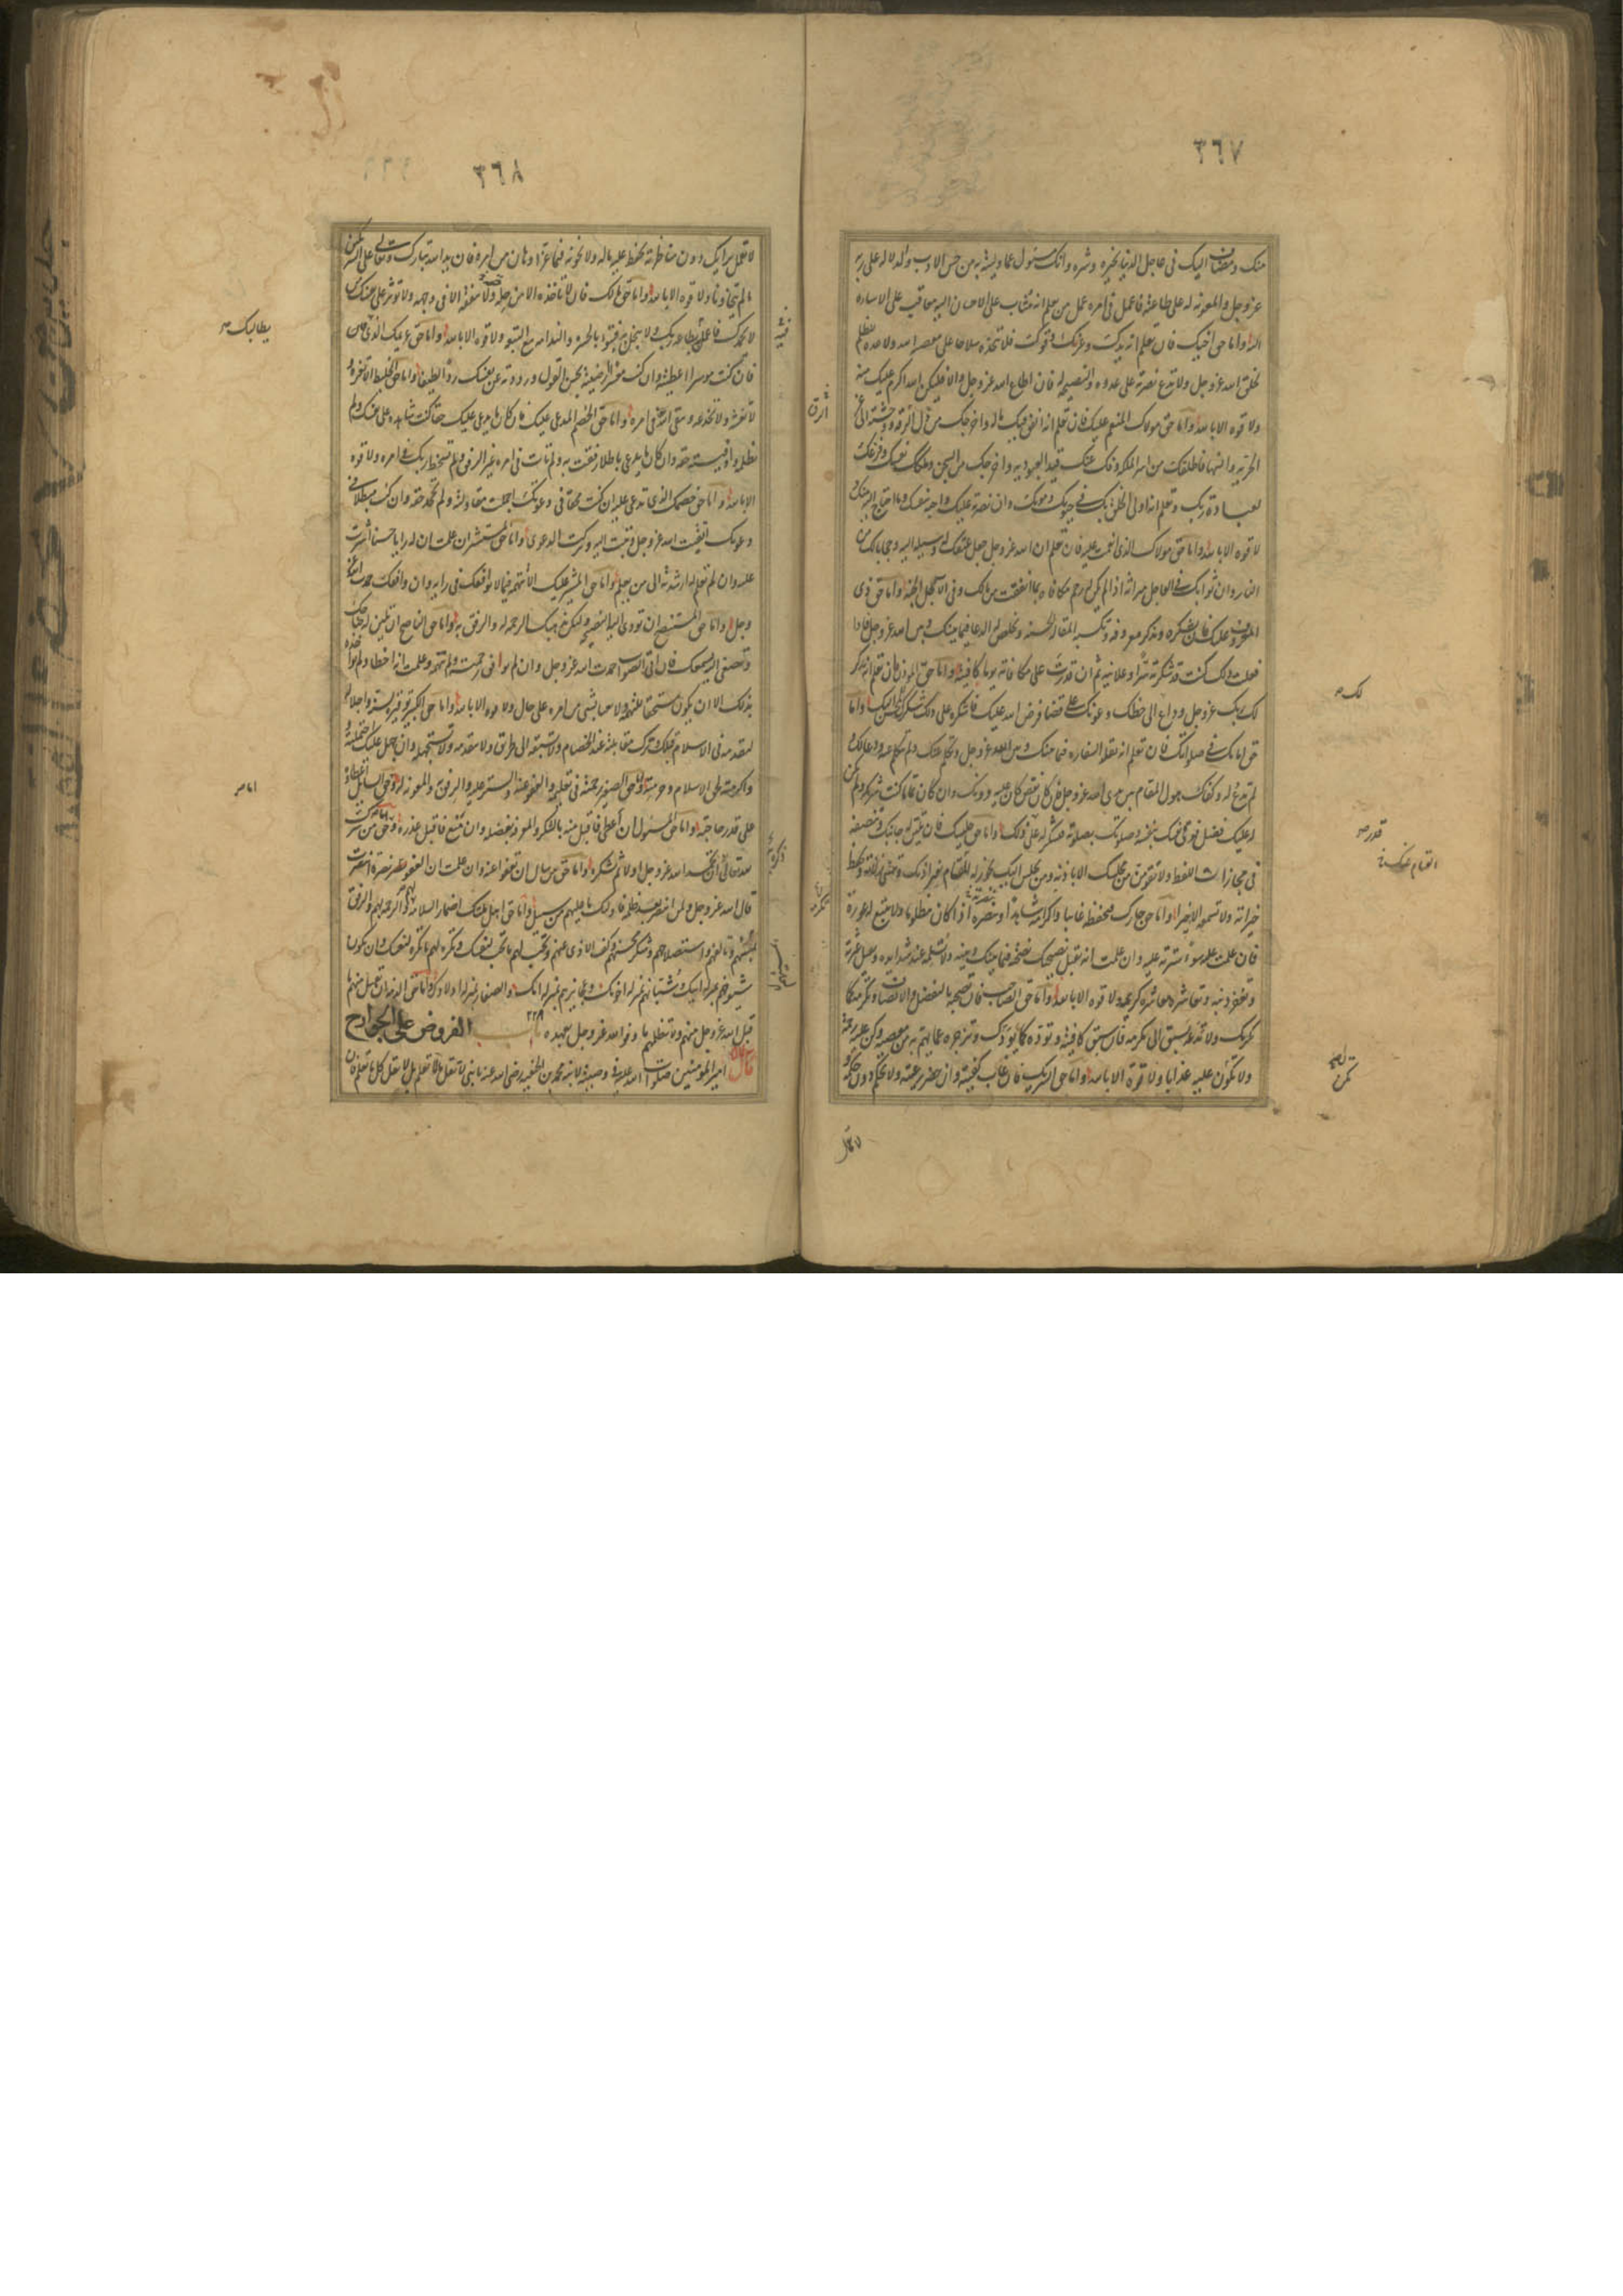 ٣٦٧
منك ومضاف اليك في عاجل الدنيا بخيره وشره وانك مسئول عما وليته به من حسن الادب والدلالة على ربه
عز وجل والمعونة له على طاعته فاعمل في امره عمل من يعلم انه مثاب على الاحسان اليه معاقب على الاساءة
اليه واما حق اخيك فان تعلم انه يدك وعزك وقوتك فلا تتخذه سلاحا على معصية الله ولا عدة للظلم
لخلق الله عز وجل ولا تدع نصرته على عدوه والنصيحة له فان اطاع الله عز وجل والا فليكن الله اكرم عليك منه
ولا قوة الا بالله واما حق مولاك المنعم عليك فان تعلم انه انفق فيك ماله واخرجك من ذل الرق ووحشته الى عز
الحرية وانسها فاطلقك من اسر الملكة وفك عنك قيد العبودية واخرجك من السجن وملكك نفسك وفرغك
لعبادة ربك وتعلم انه اولى الخلق بك في حيوتك وموتك وان نصرته عليك واجبة بنفسك وما احتاج اليه منك و
لا قوة الا بالله واما حق مولاك الذي انعمت عليه فان تعلم ان الله عز وجل جعل عتقك له وسيلة اليه وحجابا لك من
النار وان ثوابك في العاجل ميراثه اذا لم يكن له رحم مكافاة بما انفقت من مالك وفي الآجل الجنة واما حق ذي
المعروف عليك فان تشكره وتذكر معروفه وتكسبه المقالة الحسنة وتخلص له الدعاء فيما بينك وبين الله عز وجل فاذا
فعلت ذلك كنت قد شكرته سرا وعلانية ثم ان قدرت على مكافاته يوما كافيته واما حق المؤذن فان تعلم انه مذكر
لك ربك عز وجل وداع الى حظك وعونك على قضاء فرض الله عليك فاشكره على ذلك شكرك للمحسن اليك واما
حق امامك في صلواتك فان تعلم انه تقلد السفارة فيما بينك وبين الله عز وجل وتكلم عنك ولم تتكلم عنه ودعا لك و
لم تدع له وكفاك هول المقام بين يدي الله عز وجل فان كان نقص كان عليه دونك وان كان تماما كنت شريكه ولم يكن
له عليك فضل فوقى نفسك بنفسه وصلوتك بصلوته فتشكر له على قدر ذلك واما حق جليسك فان تلين له جانبك وتنصفه
في مجازاة اللفظ ولا تقوم من مجلسك الا باذنه ومن يجلس اليك يجوز له القيام بغير اذنك وتنسى زلاته وتحفظ
خيراته ولا تسمعه الا خيرا واما حق جارك فحفظه غائبا واكرامه شاهدا ونصرته اذا كان مظلوما ولا تتبع له عورة
فان علمت عليه سوءا سترته عليه وان علمت انه يقبل نصيحتك نصحته فيما بينك وبينه ولا تسلمه عند شدايده وتقيل عثرته
وتغفر ذنبه وتعاشره معاشرة كريمة ولا قوة الا بالله واما حق الصاحب فان تصحبه بالتفضل والانصاف وتكرمه كما
يكرمك ولا تدعه يسبق الى مكرمة فان سبق كافيته وتوده كما يودك وتزجره عما يهم به من معصية وكن عليه رحمة
ولا تكون عليه عذابا ولا قوة الا بالله واما حق الشريك فان غاب كفيته وان حضر رعيته ولا تحكم دون حكمه و
لك صح
قدر صح
لا تعمل برأيك دون مناظرته وتحفظ عليه ماله ولا تخونه فيما عز او هان من امره فان يد الله تبارك وتعالى على الشريكين
ما لم يتخاونا ولا قوة الا بالله واما حق مالك فان لا تاخذه الا من حله ولا تنفقه الا في وجهه ولا تؤثر على نفسك من
لا يحمدك فاعمل بطاعة ربك ولا تبخل به فتبوء بالحسرة والندامة مع التبعة ولا قوة الا بالله واما حق غريمك الذي
فان كنت موسرا اعطيته وان كنت معسرا ارضيته بحسن القول ورددته عن نفسك ردا لطيفا واما حق الخليط ان لا تغره و
لا تغشه ولا تخدعه وتتقي الله في امره واما حق الخصم المدعي عليك فان كان ما يدعي عليك حقا كنت شاهده على نفسك ولم
تظلمه واوفيته حقه وان كان ما يدعي باطلا رفقت به ولم تات في امره غير الرفق ولم تسخط ربك في امره ولا قوة
الا بالله واما حق خصمك الذي تدعي عليه ان كنت محقا في دعوتك اجملت مقاولته ولم تجحد حقه وان كنت مبطلا في
دعوتك اتقيت الله عز وجل وتبت اليه وتركت الدعوى واما حق المستشير ان علمت ان له رايا حسنا اشرت
عليه وان لم تعلم له ارشدته الى من يعلم واما حق المشير عليك ان لا تتهمه فيما لا يوافقك في رايه وان وافقك حمدت الله عز
وجل واما حق المستنصح ان تؤدي اليه النصيحة وليكن مذهبك الرحمة له والرفق به واما حق الناصح ان تلين له جناحك
وتصغي اليه بسمعك فان اتى بالصواب حمدت الله عز وجل وان لم يوافق رحمته ولم تتهمه وعلمت انه اخطا ولم تؤاخذه
بذلك الا ان يكون مستحقا للتهمة ولا تعبا بشيء من امره على حال ولا قوة الا بالله واما حق الكبير توقيره لسنه واجلاله
لتقدمه في الاسلام قبلك وترك مقابلته عند الخصام ولا تسبقه الى طريق ولا تتقدمه ولا تستجهله وان جهل عليك احتملته و
واكرمته لحق الاسلام وحرمته واما حق الصغير رحمته في تعليمه والعفو عنه والستر عليه والرفق به والمعونة له وحق السائل اعطاؤه
على قدر حاجته واما حق المسئول ان اعطى فاقبل منه بالشكر والمعرفة بفضله وان منع فاقبل عذره وحق من سرك
لله تعالى ان تحمد الله عز وجل اولا ثم تشكره واما حق من ساءك ان تعفو عنه وان علمت ان العفو يضر نصرة انتصرت
قال الله عز وجل ولمن انتصر بعد ظلمه فاولئك ما عليهم من سبيل واما حق اهل ملتك اضمار السلامة لهم والرحمة لهم والرفق
بمسيئهم وتالفهم واستصلاحهم وشكر محسنهم وكف الاذى عنهم وتحب لهم ما تحب لنفسك وتكره لهم ما تكره لنفسك وان يكون
شيوخهم بمنزلة ابيك وشبانهم بمنزلة اخوتك وعجايزهم بمنزلة امك والصغار بمنزلة اولادك واما حق الذمة ان تقبل منهم ما
قبل الله عز وجل منهم ولا تظلمهم ما وفوا لله عز وجل بعهده باب الفروض على الجوارح
قال امير المؤمنين صلوات الله عليه في وصيته لابنه محمد بن الحنفية رضي الله عنه يا بني لا تقل ما لا تعلم بل لا تقل كل ما تعلم فان
٣٦٨
يطالبك صح